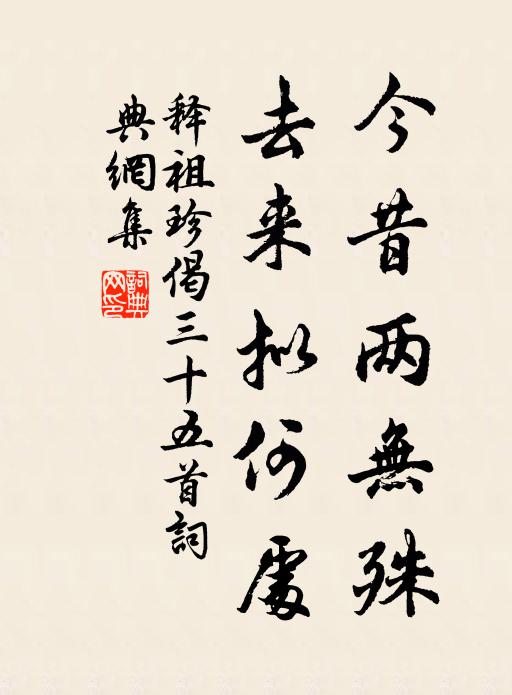 今昔两無殊
去来拟何處
释祖珍偈三十五首詞
典網集
詞典網印